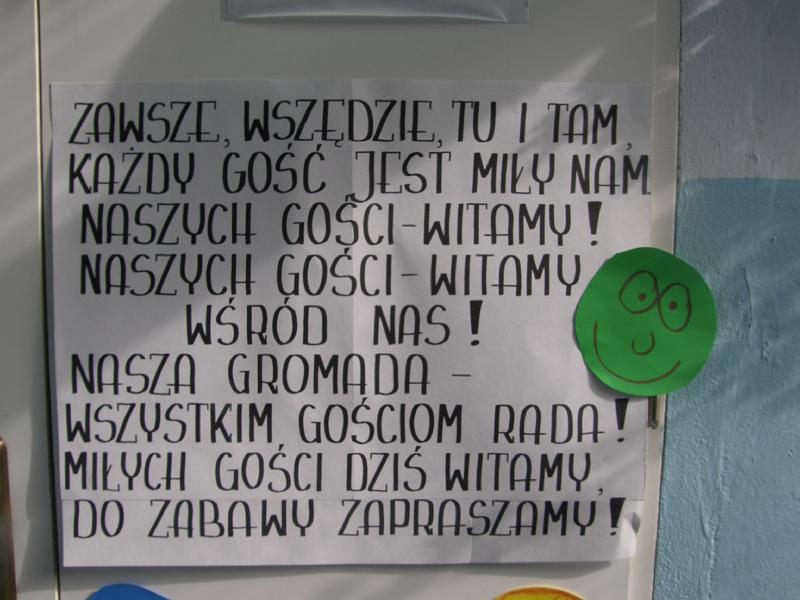 ZAWSZE, WSZĘDZIE, TU I TAM,
KAŻDY GOŚĆ JEST MIŁY NAM.
NASZYCH GOŚCI - WITAMY!
NASZYCH GOŚCI - WITAMY
WŚRÓD NAS!
NASZA GROMADA -
WSZYSTKIM GOŚCIOM RADA!
MIŁYCH GOŚCI DZIŚ WITAMY,
DO ZABAWY ZAPRASZAMY!